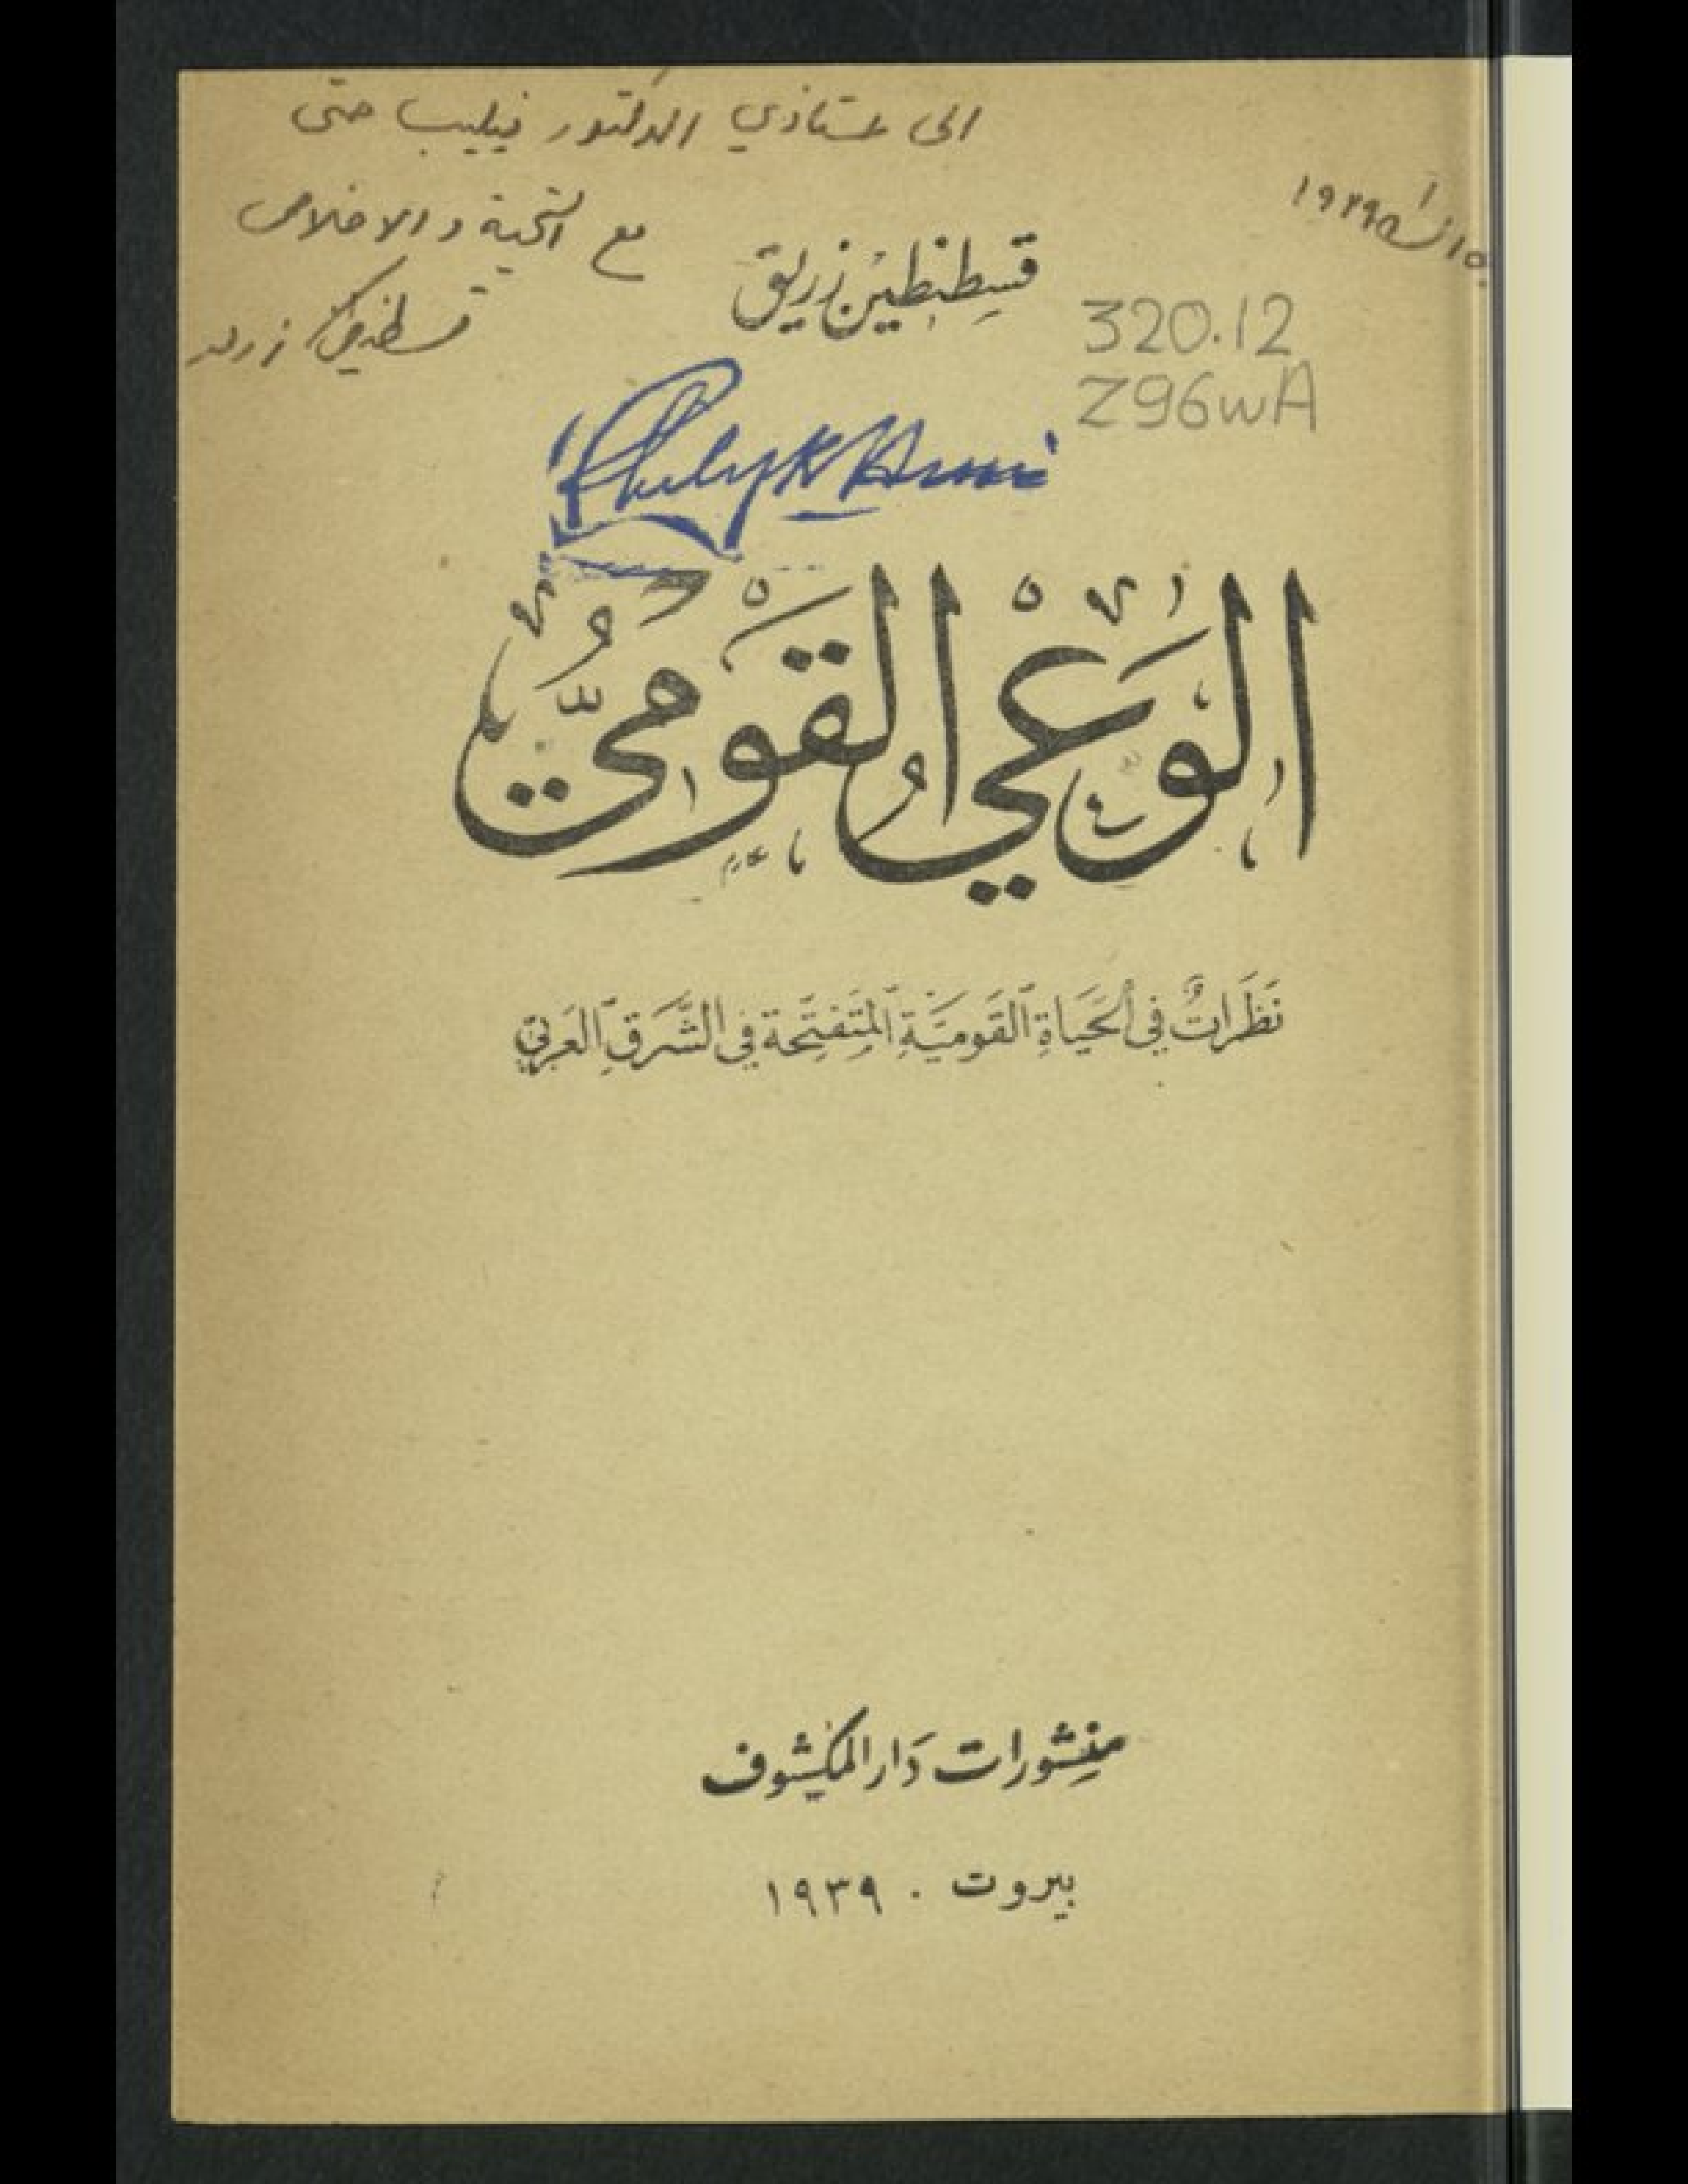 الى استاذي الدكتور فيليب حتى
مع التحية و الاخلاص
قسطنطين زريق
١٩٣٩
قسطنطين زريق
320.12
Z96wA
Philip K Hitti
الوَعْيُ القَوْمِيُّ
نَظَرَاتٌ فِي الْحَيَاةِ الْقَوْمِيَّةِ الْمُتَفَتِّحَةِ فِي الشَّرْقِ الْعَرَبِيّ
منشورات دَار المكشوف
بيروت . ١٩٣٩